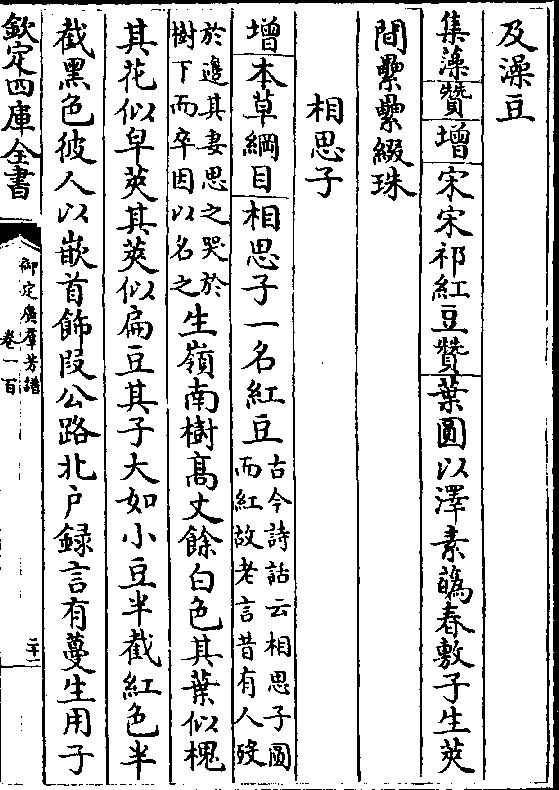 及澡豆
集藻贊增宋宋祁紅豆贊葉圓以澤素蘤春敷子生莢
間纍纍綴珠
相思子
增本草綱目相思子一名紅豆古今詩話云相思子圓
而紅故老言昔有人殁
於邊其妻思之哭於
樹下而卒因以名之生嶺南樹髙丈餘白色其葉似槐
其花似皁莢其莢似扁豆其子大如小豆半截紅色半
截黑色彼人以嵌首飾段公路北户録言有蔓生用子
欽定四庫全書
御定廣羣芳譜
卷一百
二十一